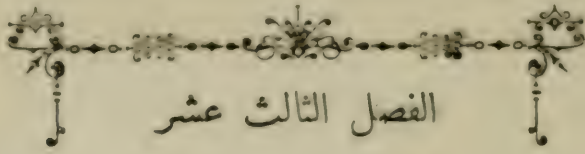 الفصل الثالث عشر